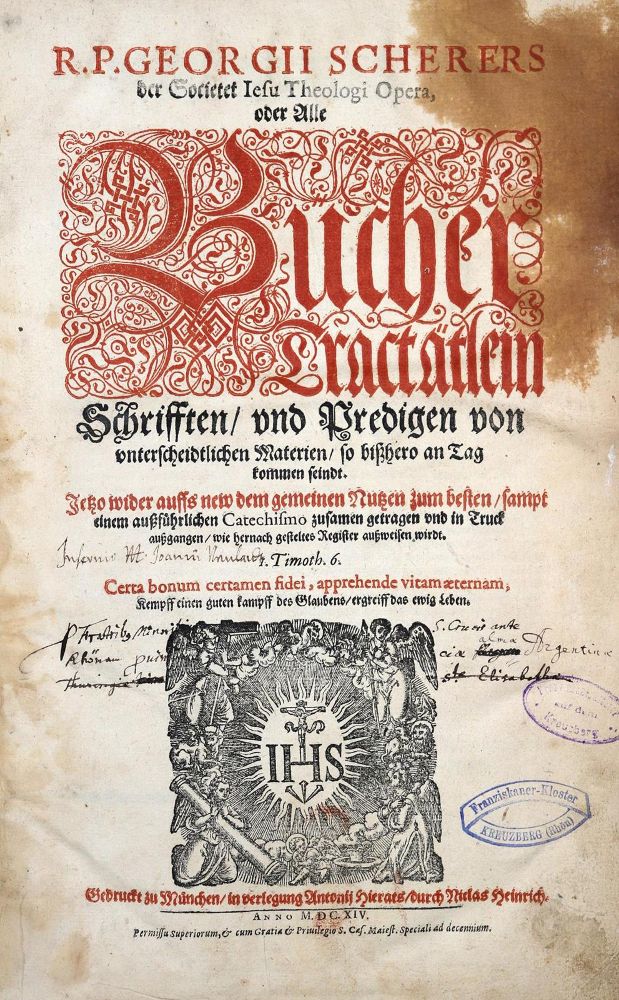 R. P. GEORGII SCHERERS
der Societet Iesu Theologi Opera,
oder Alle
Bücher
Tractätlein
Schrifften/ vnd Predigen von
vnterscheidtlichen Materien/ so bißhero an Tag
kommen seindt.
Jetzo wider auffs new dem gemeinen Nutzen zum besten/ sampt
einem außführlichen Catechismo zusamen getragen vnd in Truck
außgangen/ wie hernach gesteltes Register außweisen wirdt.
1. Timoth. 6.
Certa bonum certamen fidei, apprehende vitam æternam,
Kempff einen guten kampff des Glaubens/ ergreiff das ewig Leben.
S. Crucis ante
alma
Argentina
Elisabetha
IHS
auf dem
Kreuzberg
Franziskaner-Kloster
KREUZBERG (Rhön)
Gedruckt zu München/ in verlegung Antonij Hierats/ durch Niclas Heinrich.
ANNO M.DC.XIV.
Permissu Superiorum, & cum Gratia & Priuilegio S. Cæs. Maiest. Speciali ad decennium.